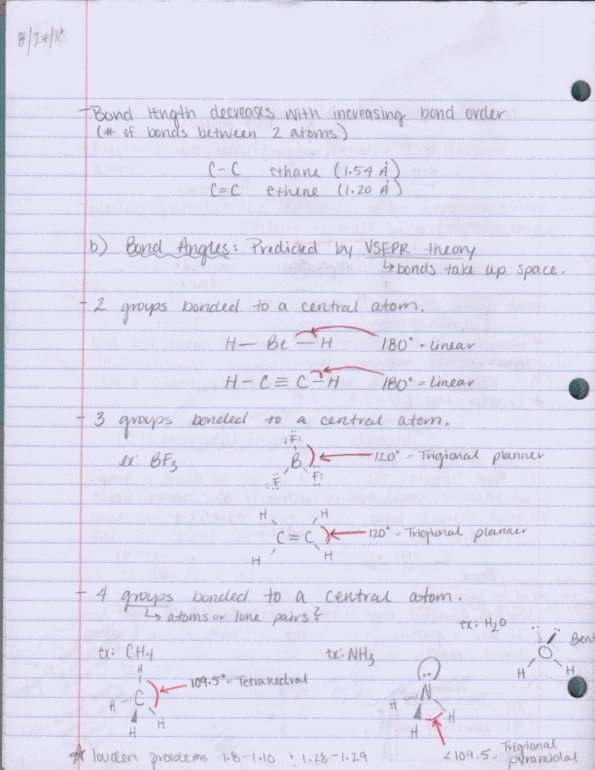 - Bond length decreases with increasing bond order
(# of bonds between 2 atoms)
C-C ethane (1.54 Å)
C=C ethene (1.20 Å)
b) Bond Angles: Predicted by VSEPR theory
↳ bonds take up space.
- 2 groups bonded to a central atom.
H — Be — H 180° = linear
H - C ≡ C - H 180° = linear
- 3 groups bonded to a central atom.
ex: BF3
F
B 120° = Trigional planner
F F
H H
C = C 120° = Trigional planner
H H
- 4 groups bonded to a central atom.
↳ atoms or lone pairs?
ex: H2O
ex: CH4 ex: NH3
O Bent
H H
H
C 109.5° = Tetrahedral
H H
H
N
H H
H
<109.5 = Trigional pyramidal
★ louden problems 1.8-1.10 : 1.28-1.29